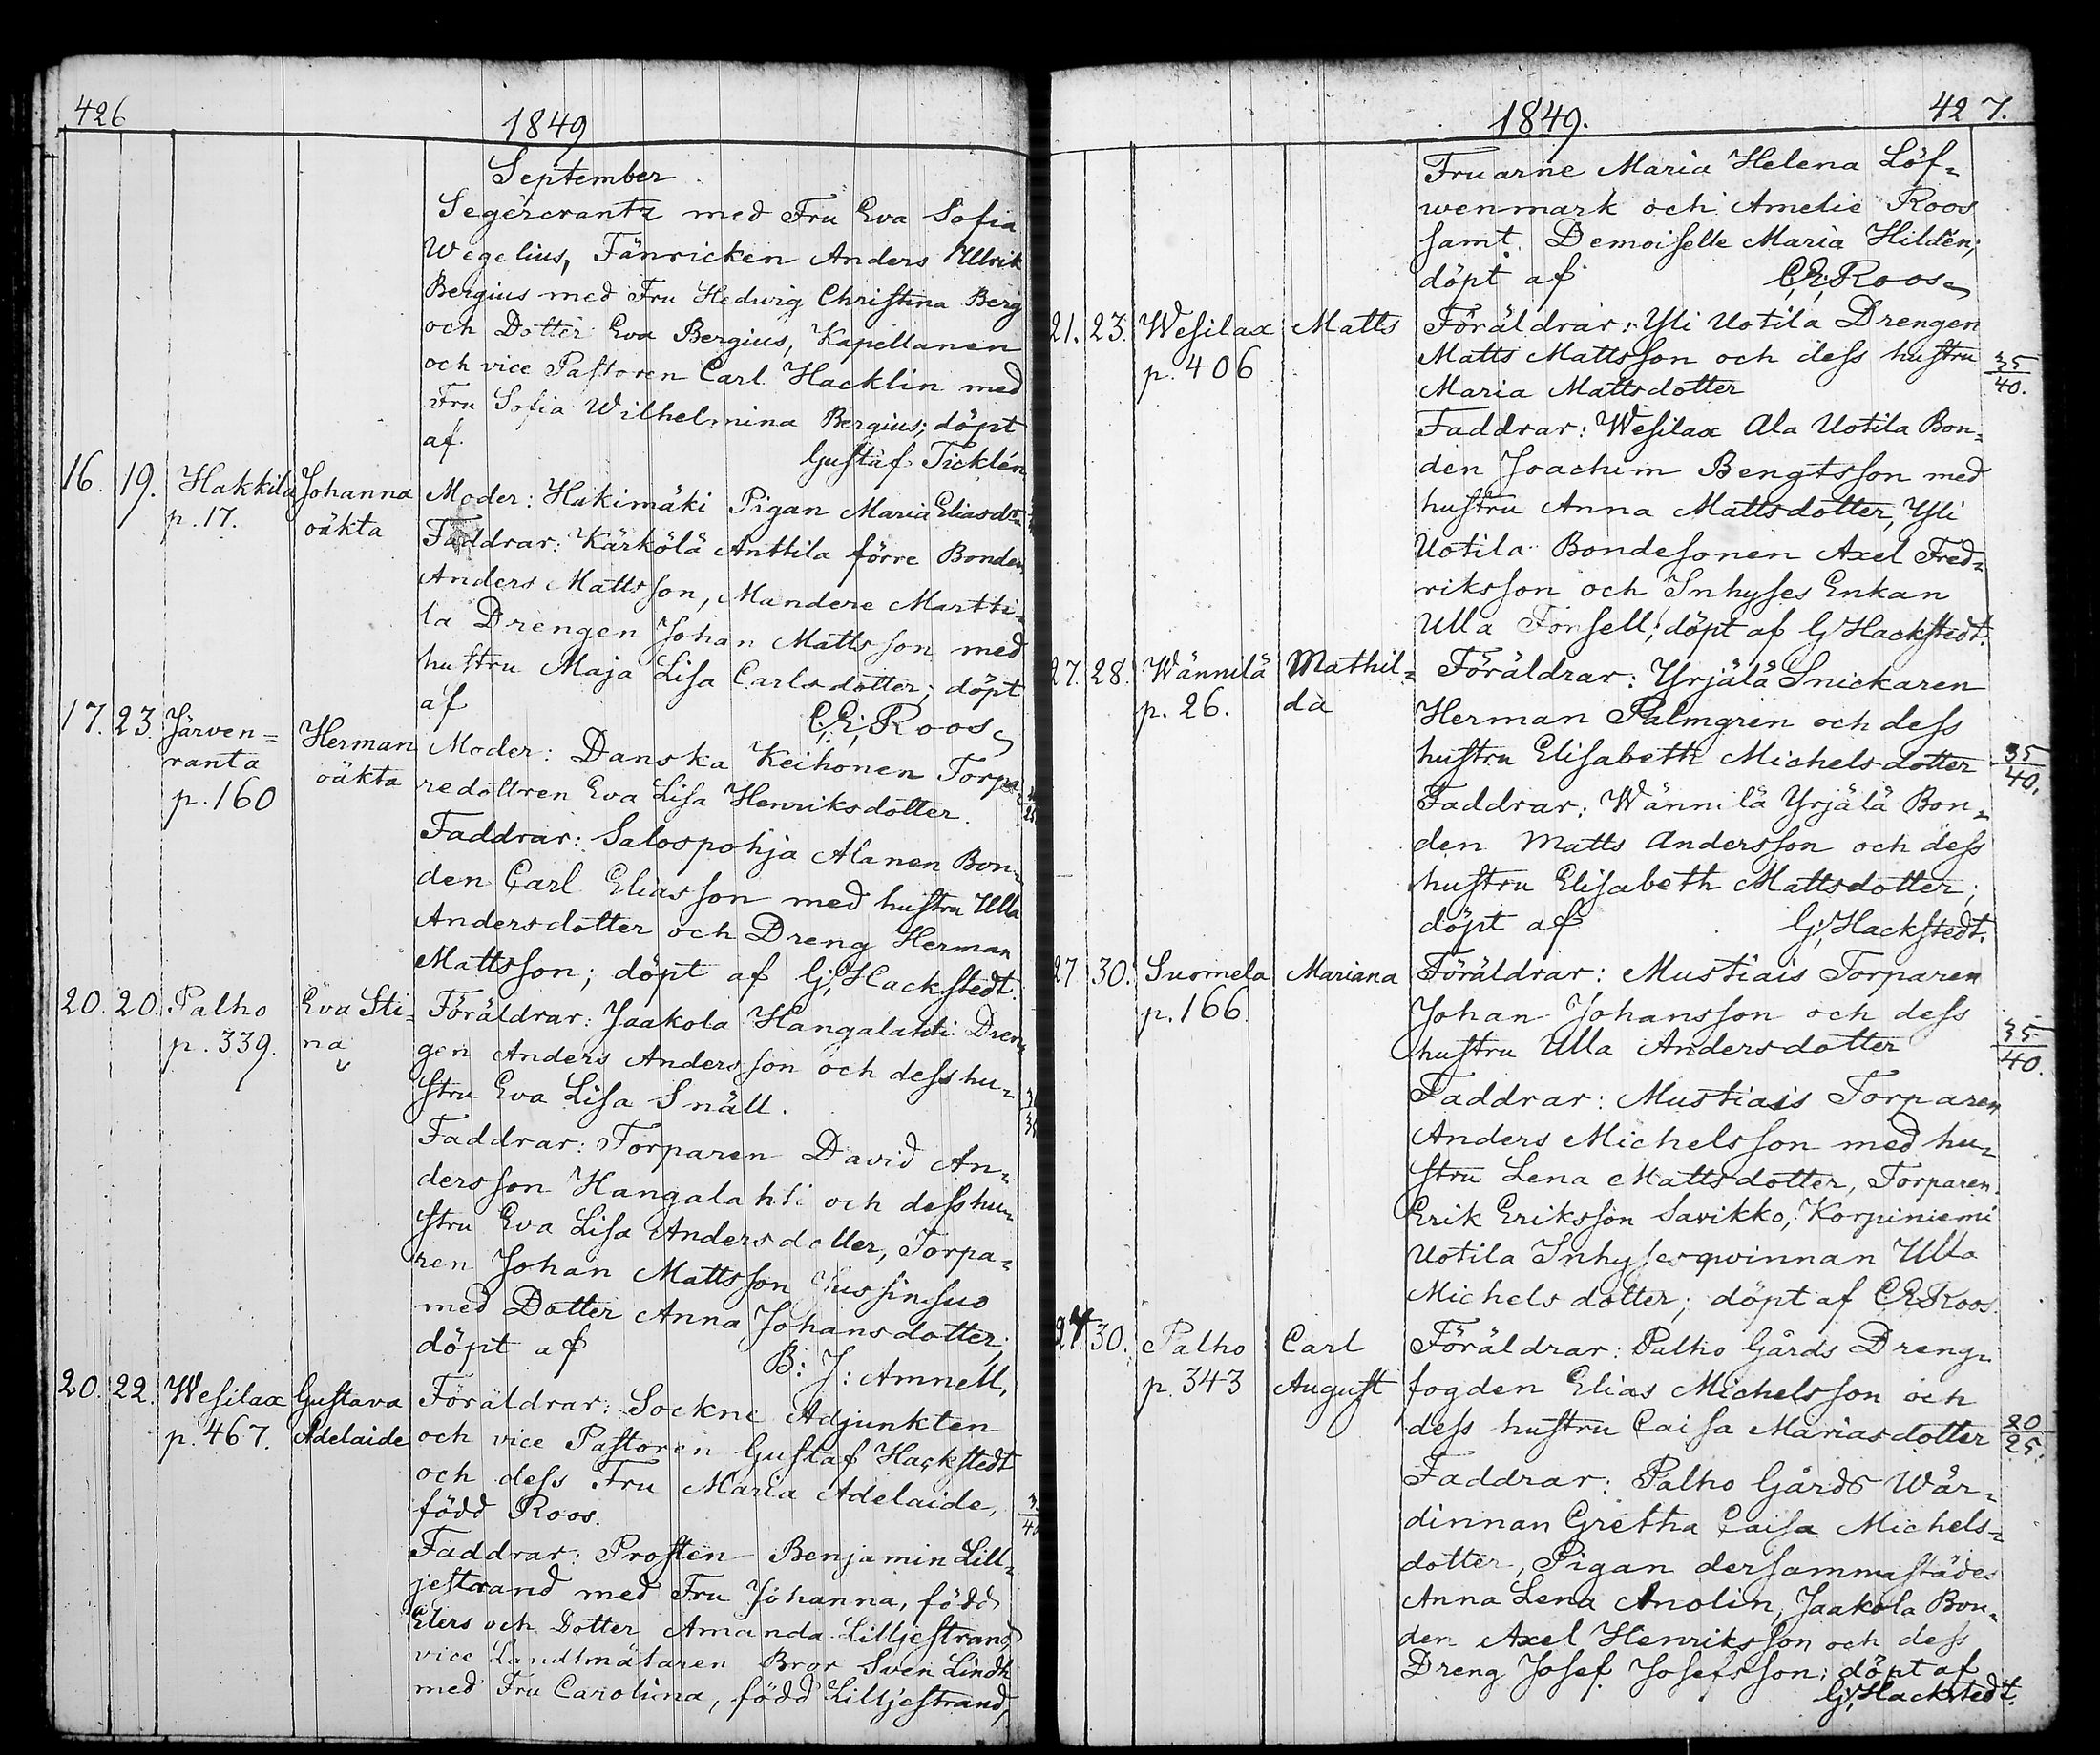 426
1849
September
Segercrantz med Fru Eva Sofia
Wegelius, Fänricken Anders Ulrik
Bergius med Fru Hedwig Christina Berg
och Dotter Eva Bergius, Kapellanen
och vice Pastoren Carl Hacklin med
Fru Sofia Wilhelmina Bergius; döpt
af Gustaf Ticklén
16. 19. Hakkila Johanna Moder: Hakimäki Pigan Maria Eliasdr
p. 17. oäkta Faddrar: Kärkölä Anttila förre Bonden
Anders Mattsson, Mandere Martti-
la Drengen Johan Mattsson med
hustru Maja Lisa Carlsdotter; döpt
af C. E. Roos
17. 23. Järven= Herman Moder: Danska Keihonen Torpa-
ranta oäkta redottren Eva Lisa Henriksdotter.
p. 160 Faddrar: Salospohja Alanen Bon-
den Carl Eliasson med hustru Ulla
Andersdotter och Dreng Herman
Mattsson; döpt af G; Hackstedt.
20. 20. Palho Eva Sti- Föräldrar: Jaakola Hangalahti Dren-
p. 339. na gen Anders Andersson och dess hu-
stru Eva Lisa Snäll.
Faddrar: Torparen David An-
dersson Hangalahti och dess hu-
stru Eva Lisa Andersdotter, Torpa-
ren Johan Mattsson
med Dotter Anna Johansdotter;
döpt af B: J: Amnell,
20. 22. Wesilax Gustava Föräldrar: Sockne Adjunkten
p. 467. Adelaide och vice Pastoren Gustaf Hackstedt
och dess Fru Maria Adelaide,
född Roos.
Faddrar: Prosten Benjamin Lill-
jestrand med Fru Johanna, född
Elers och Dotter Amanda Lilljestrand
vice Landtmätaren Bror Sven Lindh
med Fru Carolina, född Lilljestrand,
1849.
427.
Fruarne Maria Helena Löf-
wenmark och Amelie Roos
samt Demoiselle Maria Hildén;
döpt af C; E; Roos
21. 23. Wesilax Matts Föräldrar: Yli Uotila Drengen
p. 406 Matts Mattsson och dess hustru 35/40.
Maria Mattsdotter
Faddrar: Wesilax Ala Uotila Bon-
den Joachim Bengtsson med
hustru Anna Mattsdotter, Yli
Uotila Bondesonen Axel Fred-
riksson och Inhyses Enkan
Ulla Fonsell; döpt af G Hackstedt.
27. 28. Wännilä Mathil- Föräldrar: Yrjälä Snickaren
p. 26. da Herman Palmgren och dess
hustru Elisabeth Michelsdotter 35/40.
Faddrar: Wännilä Yrjälä Bon-
den Matts Andersson och dess
hustru Elisabeth Mattsdotter;
döpt af G; Hackstedt.
27 30. Suomela Mariana Föräldrar: Mustiais Torparen
p. 166. Johan Johansson och dess
hustru Ulla Andersdotter 35/40.
Faddrar: Mustiais Torparen
Anders Michelsson med hu-
stru Lena Mattsdotter, Torparen
Erik Eriksson Savikko, Korpiniemi
Uotila Inhysesqwinnan Ulla
Michelsdotter; döpt af C E Roos
24. 30. Palho Carl Föräldrar: Palho Gårds Dreng-
p. 343 August fogden Elias Michelsson och
dess hustru Caisa Mariasdotter 20/25.
Faddrar: Palho Gårds Wär-
dinnan Gretha Caisa Michels-
dotter, Pigan dersammastädes
Anna Lena Anolin, Jaakola Bon-
den Axel Henriksson och dess
Dreng Josef Josefsson; döpt af
G; Hackstedt.